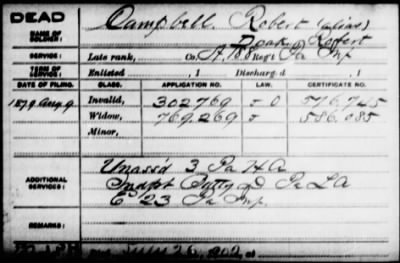 DEAD
NAME OF SOLDIER: Campbell, Robert (alias)
Doak, Robert
SERVICE: Late rank, Co. A, 188 Reg't Pa Inf
TERM OF SERVICE: Enlisted , 1 Discharged , 1
DATE OF FILING. CLASS. APPLICATION NO. LAW. CERTIFICATE NO.
1879. Aug. 9 Invalid, 302,769 576,745
Widow, 769,269 586,085
Minor,
ADDITIONAL SERVICES: Unass'd 3 Pa H A
Indpt Batty Pa L A
E 23 Pa Inf.
REMARKS:
26, 1902, at